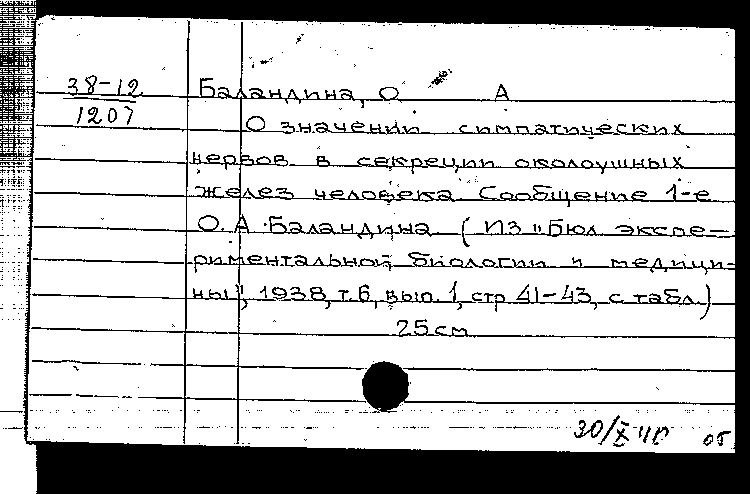 38-12
1207
Баландина, О. А
О значении симпатических
нервов в секреции околоушных
желез человека. Сообщение 1-е
О. А. Баландина (Из "Бюл. экспе-
риментальной биологии и медици-
ны", 1938, т. 6, вып. 1, стр 41-43, с табл.)
25 см
30/X 40